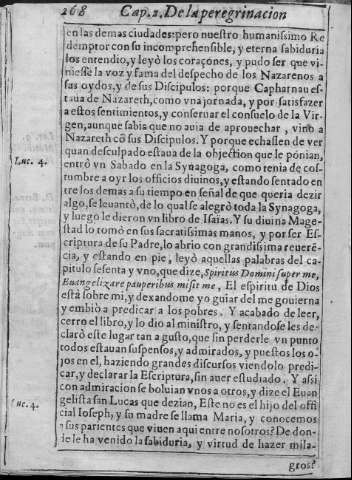 268 Cap. 2. De la peregrinacion
en las demas ciudades: pero nuestro humanissimo Re
demptor con su incomprehensible, y eterna sabiduria
los entendio, y leyò los coraçones, y pudo ser que vi-
niesse la voz y fama del despecho de los Nazarenos a
sus oydos, y de sus Discipulos: porque Capharnau es-
taua de Nazareth, como vna jornada, y por satisfazer
a estos sentimientos, y conseruar el consuelo de la Vir-
gen, aunque sabia que no auia de aprouechar, vino a
Nazareth cõ sus Discipulos. Y porque echassen de ver
quan desculpado estaua de la objection que le ponian,
Luc. 4.
entrò vn Sabado en la Synagoga, como tenia de cos-
tumbre a oyr los officios diuinos, y estando sentado en
tre los demas a su tiempo en señal de que queria dezir
algo, se leuantò, de lo qual se alegrò toda la Synagoga,
y luego le dieron vn libro de Isaias. Y su diuina Mage-
stad lo tomò en sus sacratissimas manos, y por ser Es-
criptura de su Padre, lo abrio con grandissima reuerē-
cia, y estando en pie, leyò aquellas palabras del ca-
pitulo sesenta y vno, que dize, Spiritus Domini super me,
Euangelizare pauperibus misit me, El espiritu de Dios
està sobre mi, y dexandome yo guiar del me gouierna
y embiò a predicar a los pobres. Y acabado de leer,
cerro el libro, y lo dio al ministro, y sentandose les de-
clarò este lugar tan a gusto, que sin perderle vn punto
todos estauan suspensos, y admirados, y puestos los o-
jos en el, haziendo grandes discursos viendolo predi-
car, y declarar la Escriptura, sin auer estudiado. Y assi
con admiracion se boluian vnos a otros, y dize el Euan
Luc. 4.
gelista san Lucas que dezian, Este no es el hijo del offi
cial Ioseph, y su madre se llama Maria, y conocemos
a sus parientes que viuen aqui entre nosotros? De don-
de le ha venido la sabiduria, y virtud de hazer mila-
gros?